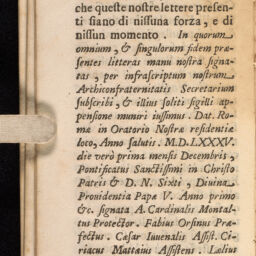 che queste nostre lettere presen-
ti siano di nissuna forza, e di
nissun momento. In quorum
omnium, & singulorum fidem præ-
sentes litteras manu nostra signa-
tas, per infrascriptum nostrum
Archiconfraternitatis Secretarium
subscribi, & illius soliti sigilli ap-
pensione muniri iussimus. Dat. Ro-
mæ in Oratorio Nostræ residentiæ
loco, Anno Salutis. M.D.LXXXV.
die verò prima mensis Decembris,
Pontificatus Sanctissimi in Christo
Patris & D. N. Sixti, Diuina
Prouidentia Papæ V. Anno primo
&c. signata A. Cardinalis Montal-
tus Protector. Fabius Orsinus Præ-
fectus. Cæsar Iuuenalis Assist. Ci-
riacus Mattæius Assistens. Lælius